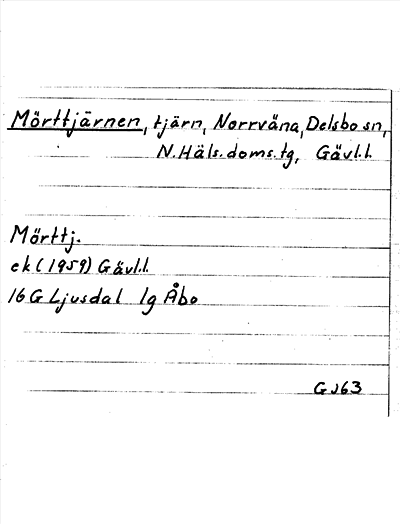 Mörttjärnen, tjärn, Norrväna, Delsbo sn,
N. Häls. doms. tg, Gävl.l.
Mörttj.
ek (1959) Gävl.l.
16 G Ljusdal 1g Åbo
GJ63